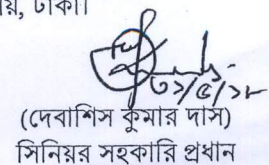 য়, ঢাকা।
৩১/৫/১৮
(দেবাশিস কুমার দাস)
সিনিয়র সহকারি প্রধান